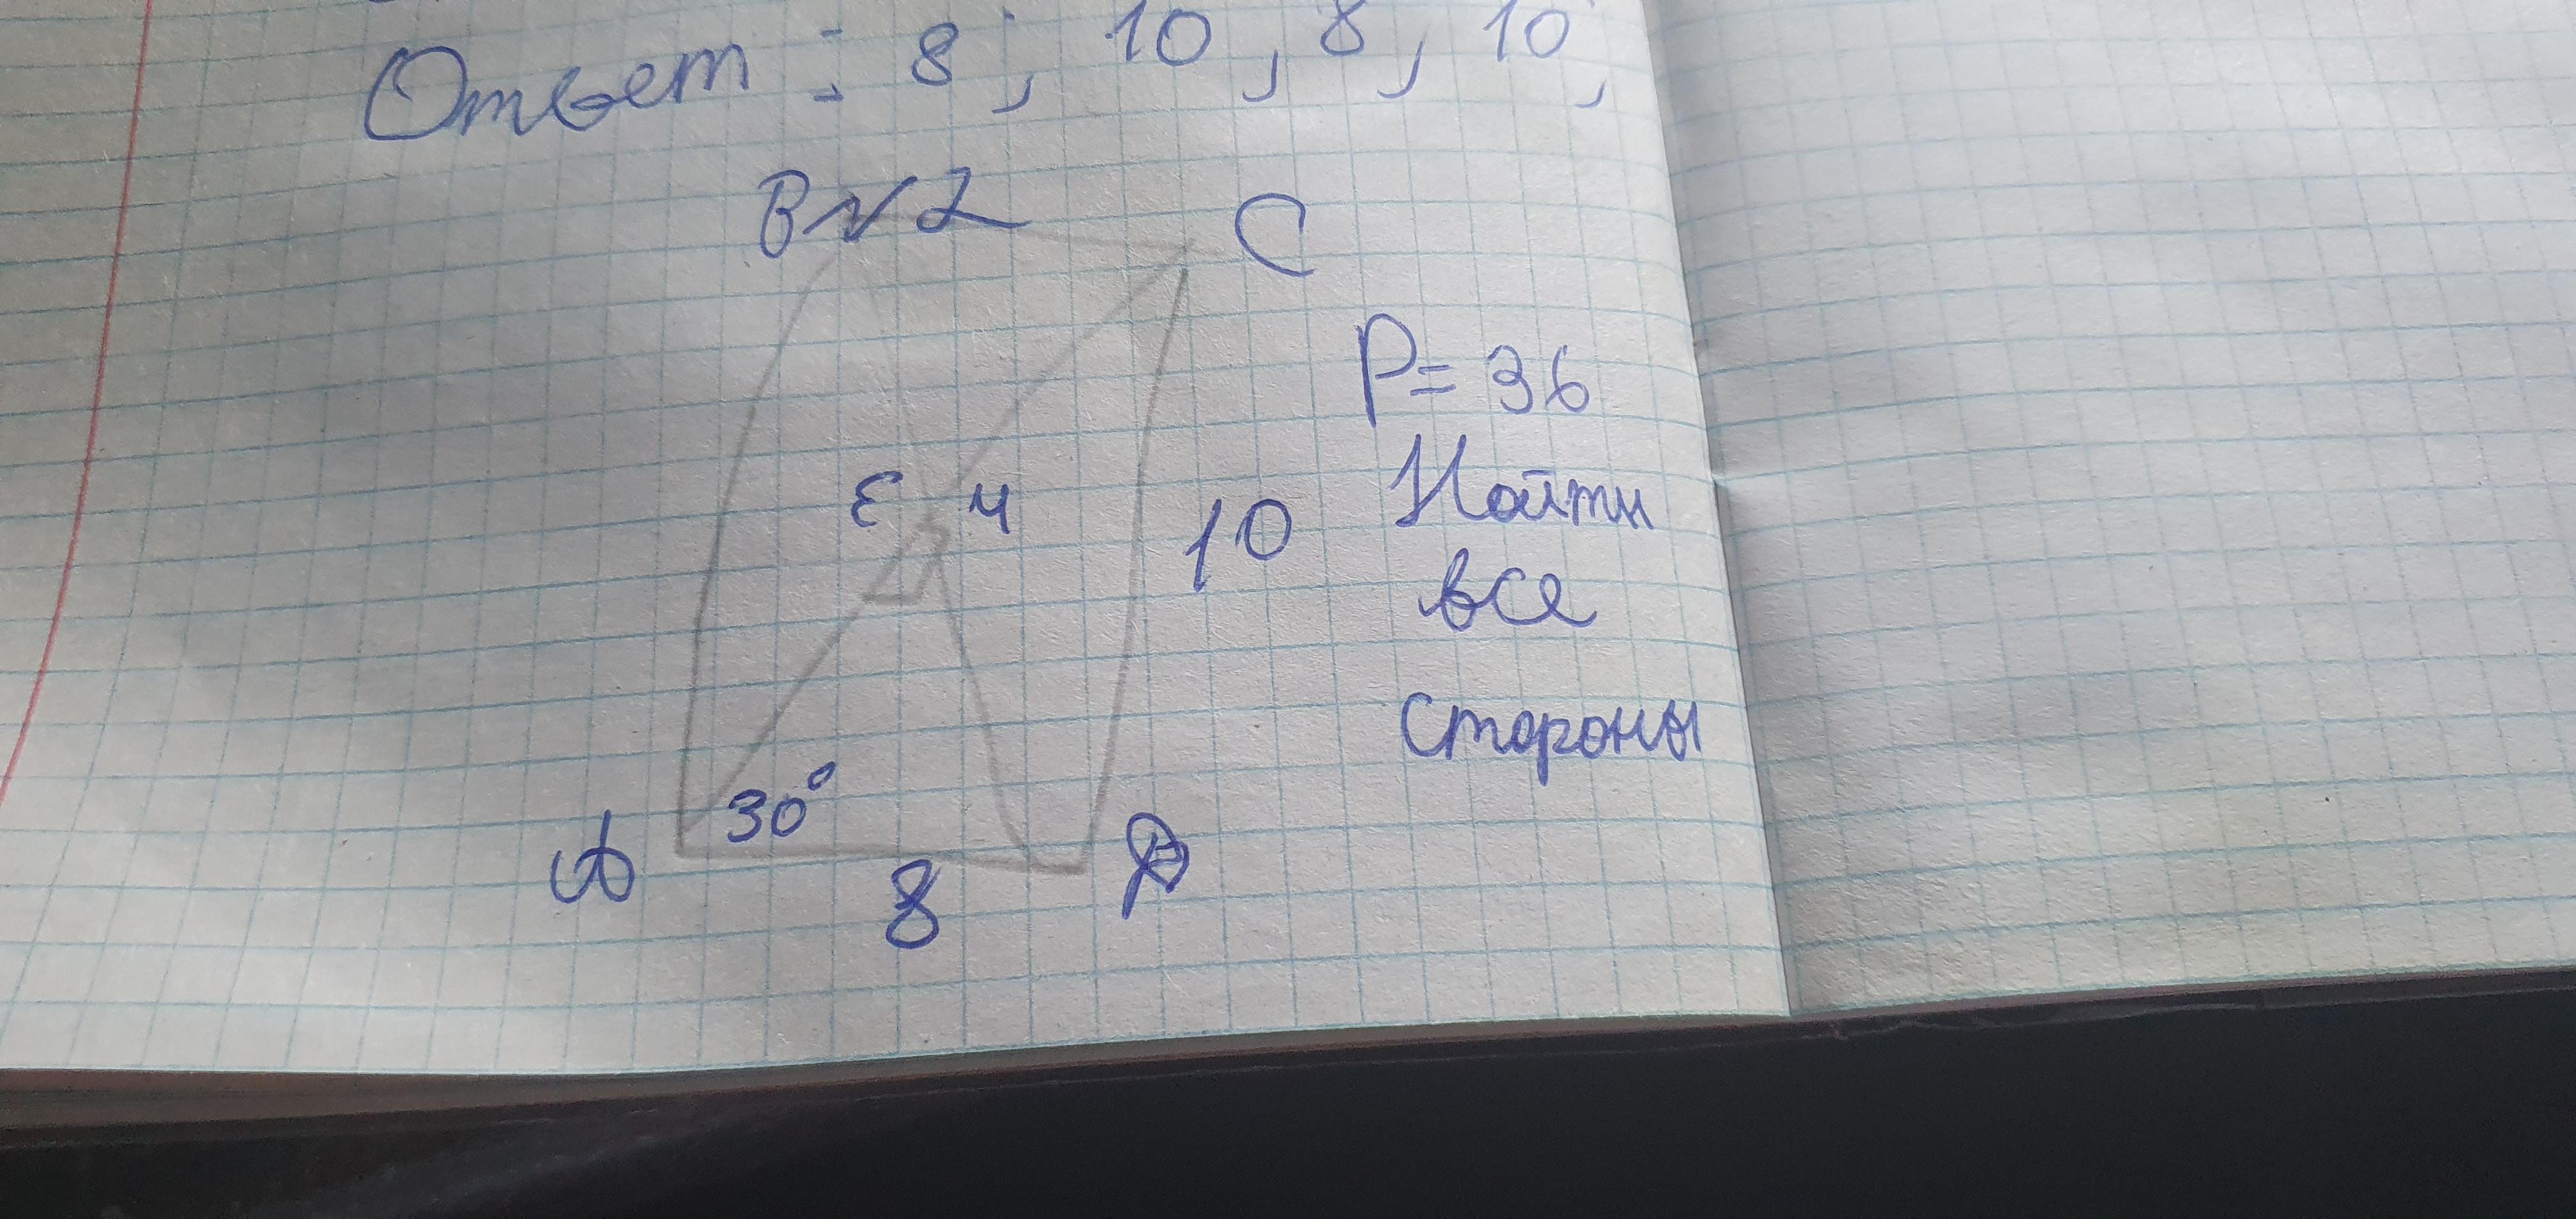 Ответ: 8; 10, 8, 10,
B №2 C
P=36
Найти
E 4 10
все
стороны
30°
A 8 D